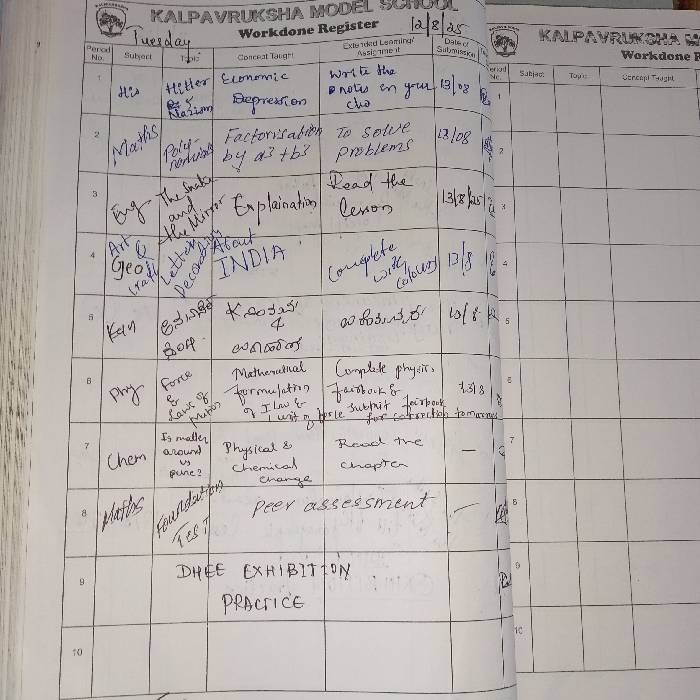 KALPAVRUKSHA MODEL SCHOOL
Workdone Register
12/8/25
Tuesday
Period No.
Subject
Topic
Concept Taught
Extended Learning/ Assignment
Date of Submission
1
His
Hitler
&
Nazism
Economic
Depression
Write the
notes in your
13/08
2
Maths
Poly-
nomials
Factorisation
by a3+b3
To solve
problems
13/08
3
Eng
The Snake
and
the Mirror
Explaination
Read the
lesson
13/8/25
4
Art &
Geo
Craft
Letter
Decoration
About
INDIA
Complete
with
colours
13/8
5
Kan
13/8
6
Phy
Force
&
Law of
Mathematical
formulation
of I law &
1 unit of force
Complete physics
fairbook &
submit fairbook
for correction tomorrow
13/8
7
Chem
Is matter
around
us
pure?
Physical &
Chemical
change
Read the
chapter
—
8
Maths
Foundation
TEST
Peer assessment
—
9
DHEE EXHIBITION
PRACTICE
10
KALPAVRUKSHA M
Workdone R
Period No.
Subject
Topic
Concept Taught
1
2
3
4
5
6
7
8
9
10